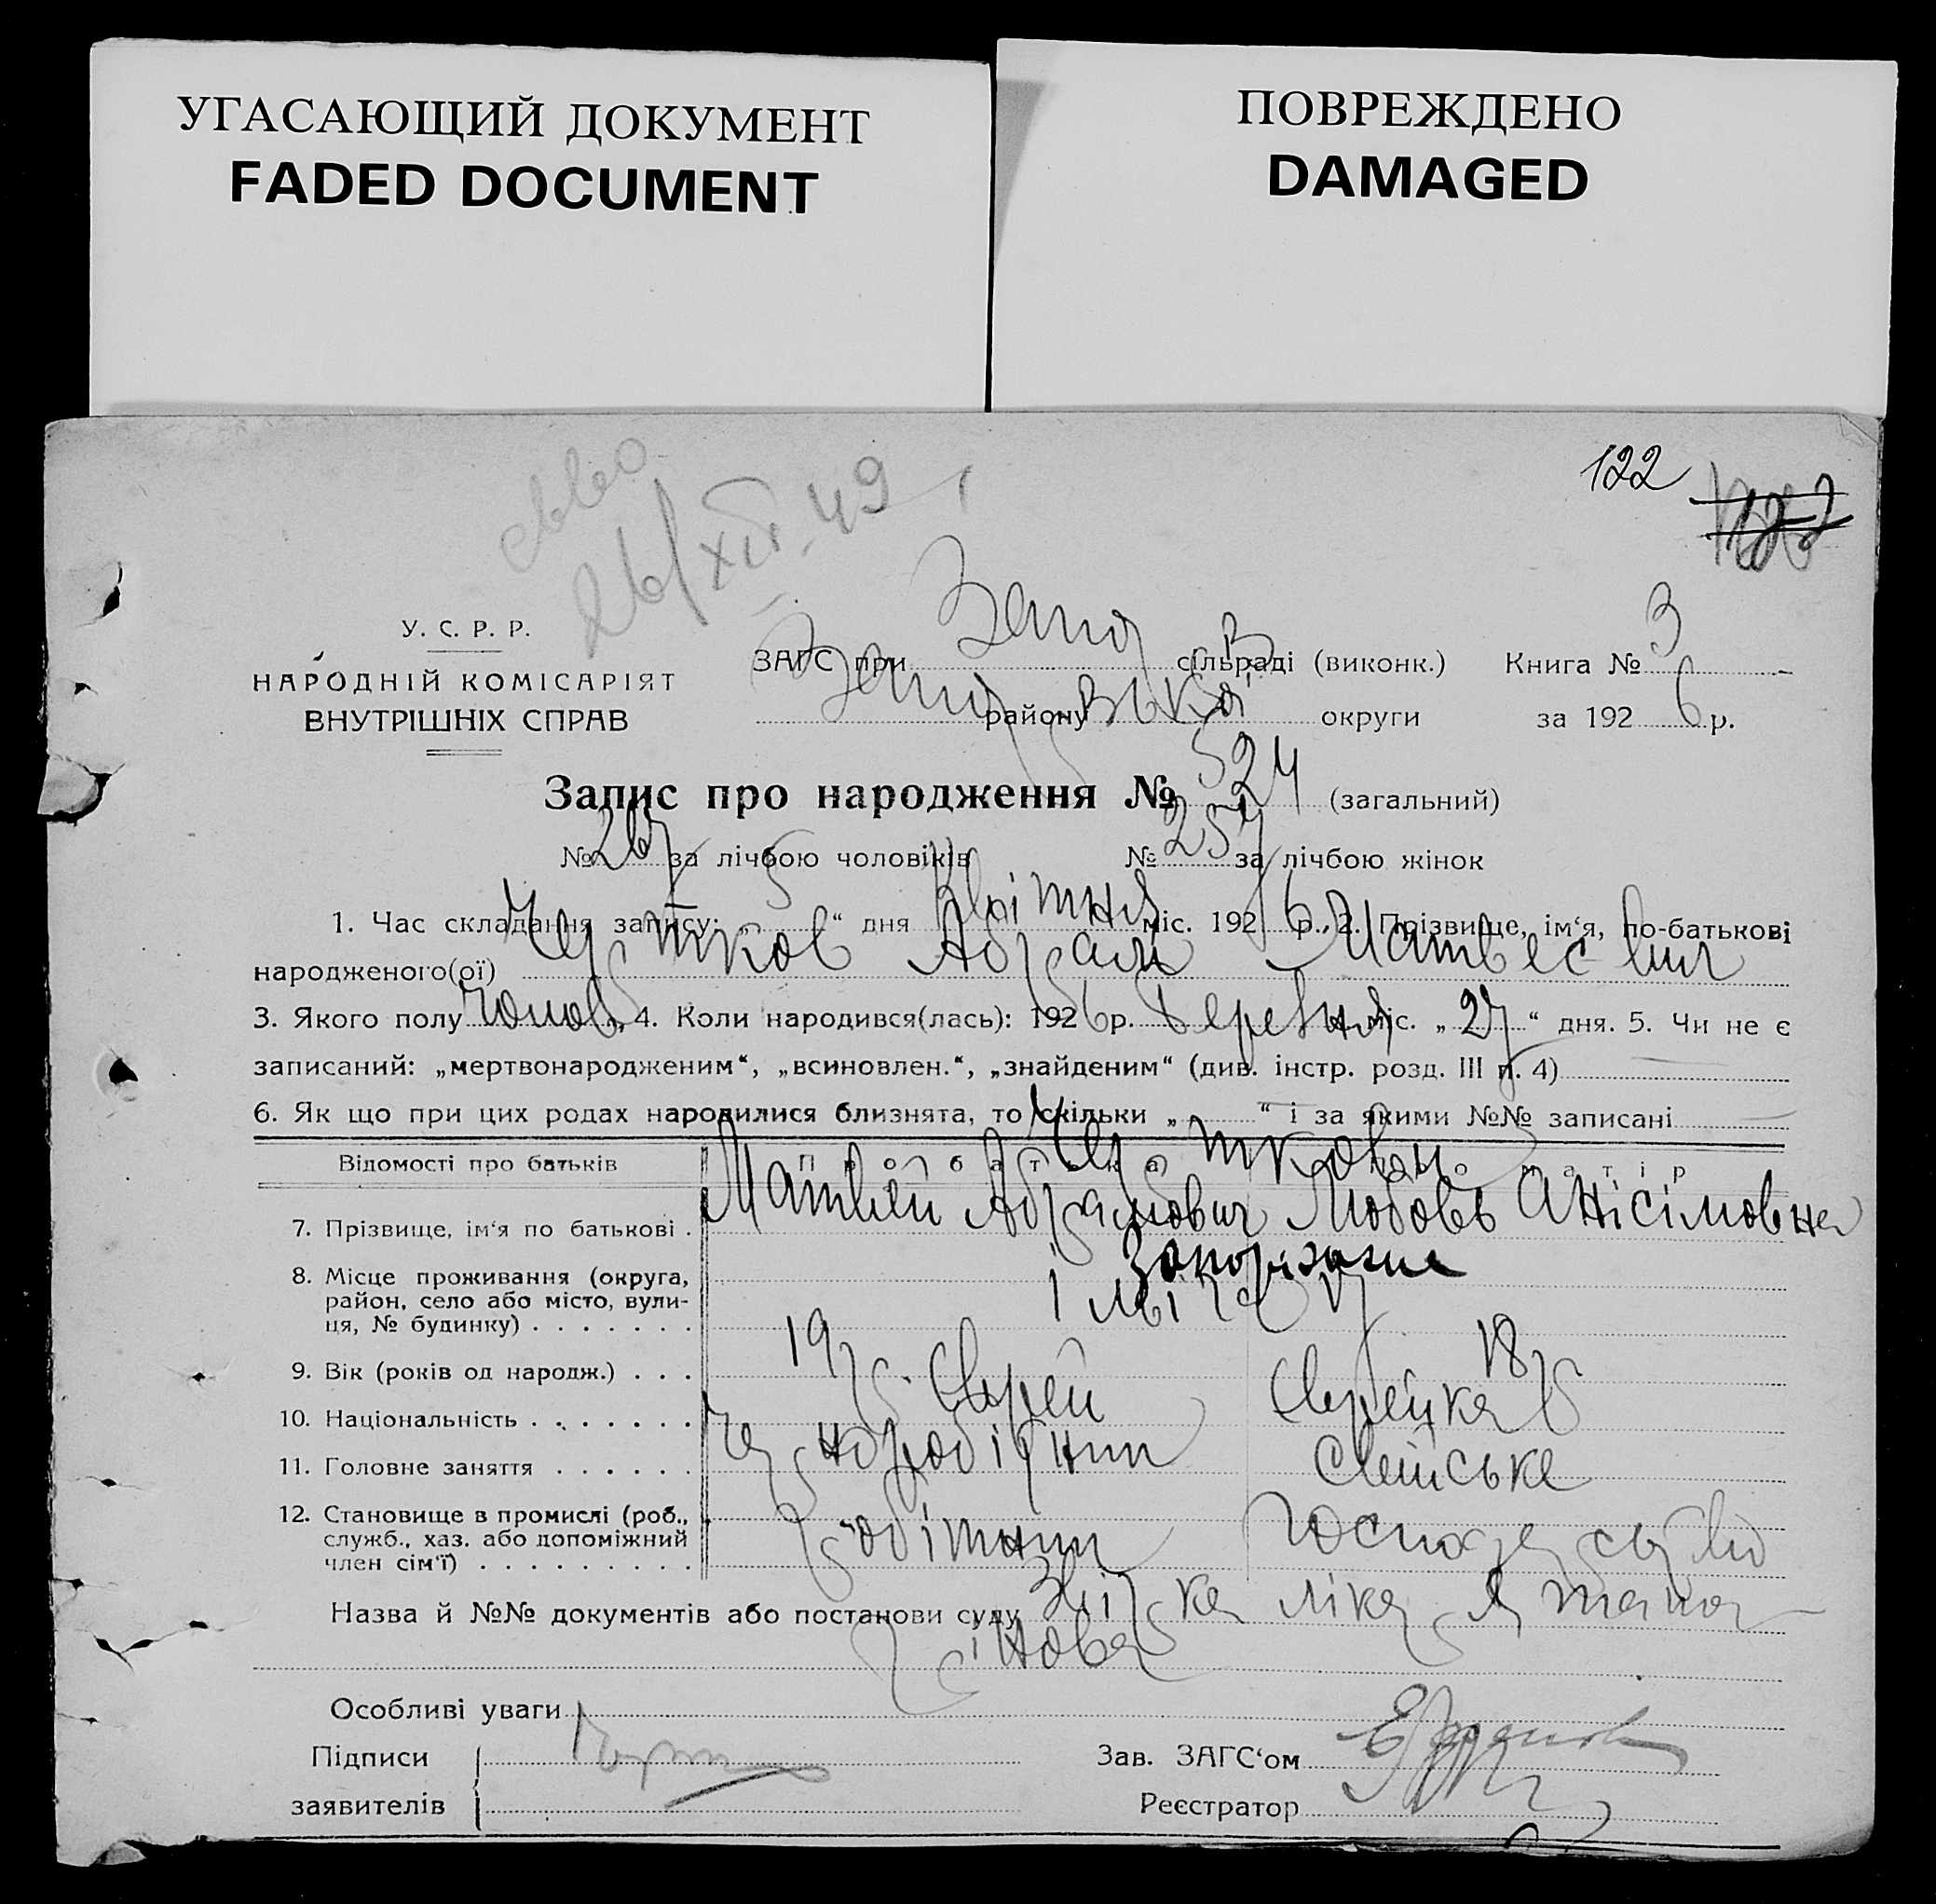 УГАСАЮЩИЙ ДОКУМЕНТ
FADED DOCUMENT
ПОВРЕЖДЕНО
DAMAGED
122
26/XII-49
У. С. Р. Р.
НАРОДНІЙ КОМІСАРІЯТ
ВНУТРІШНІХ СПРАВ
ЗАГС при Запор сільраді (виконк.) Книга № 3
району округи за 1926 р.
Запис про народження № 524 (загальний)
№ 267 за лічбою чоловіків № 257 за лічбою жінок
1. Час складання запису: „5“ дня Квітня міс. 1926 р., 2. Прізвище, ім‘я, по-батькові
народженого(ої) Чертков Абрам Матвеєвич
3. Якого полу чолов, 4. Коли народився(лась): 1926 р. Березня міс. „27“ дня. 5. Чи не є
записаний: „мертвонародженим“, „всиновлен.“, „знайденим“ (див. інстр. розд. III п. 4)
6. Як що при цих родах народилися близнята, то скільки „ “ і за якими №№ записані
Відомості про батьків Про батька Про матір
Черткови
7. Прізвище, ім‘я по батькові . Матвей Абрамович Любовь Анісімовна
8. Місце проживання (округа, Запоріжжя
район, село або місто, вули-
ця, № будинку) . . . . . . .
9. Вік (років од народж.) . . . 19 р. 18 р
10. Національність . . . . . . . Єврей Єврейка
11. Головне заняття . . . . . . Чернобробітний Сімейське
12. Становище в промислі (роб., робітник господарство
служб., хаз. або допоміжний
член сім‘ї) . . . . . . . . .
Назва й №№ документів або постанови суду Звірка лікаря
Особливі уваги
Підписи
заявителів
Зав. ЗАГС‘ом
Реєстратор